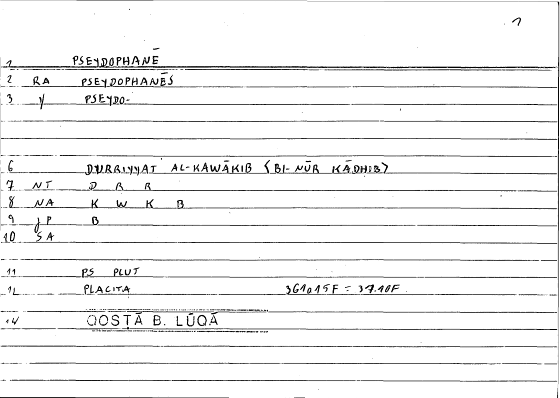 1
1 PSEYDOPHANĒ
2 RA PSEYDOPHANĒS
3 y PSEYDO-
6 DURRIYYAT AL-KAWĀKIB (BI-NŪR KĀDHIB)
7 NT D R R
8 NA K W K B
9 JP B
10 SA
11 PS PLUT
12 PLACITA 361a15F = 37.10F
14 QOSṬĀ B. LŪQĀ